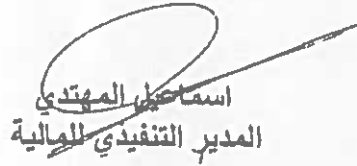 اسماعيل المهتدي
المدير التنفيذي للمالية